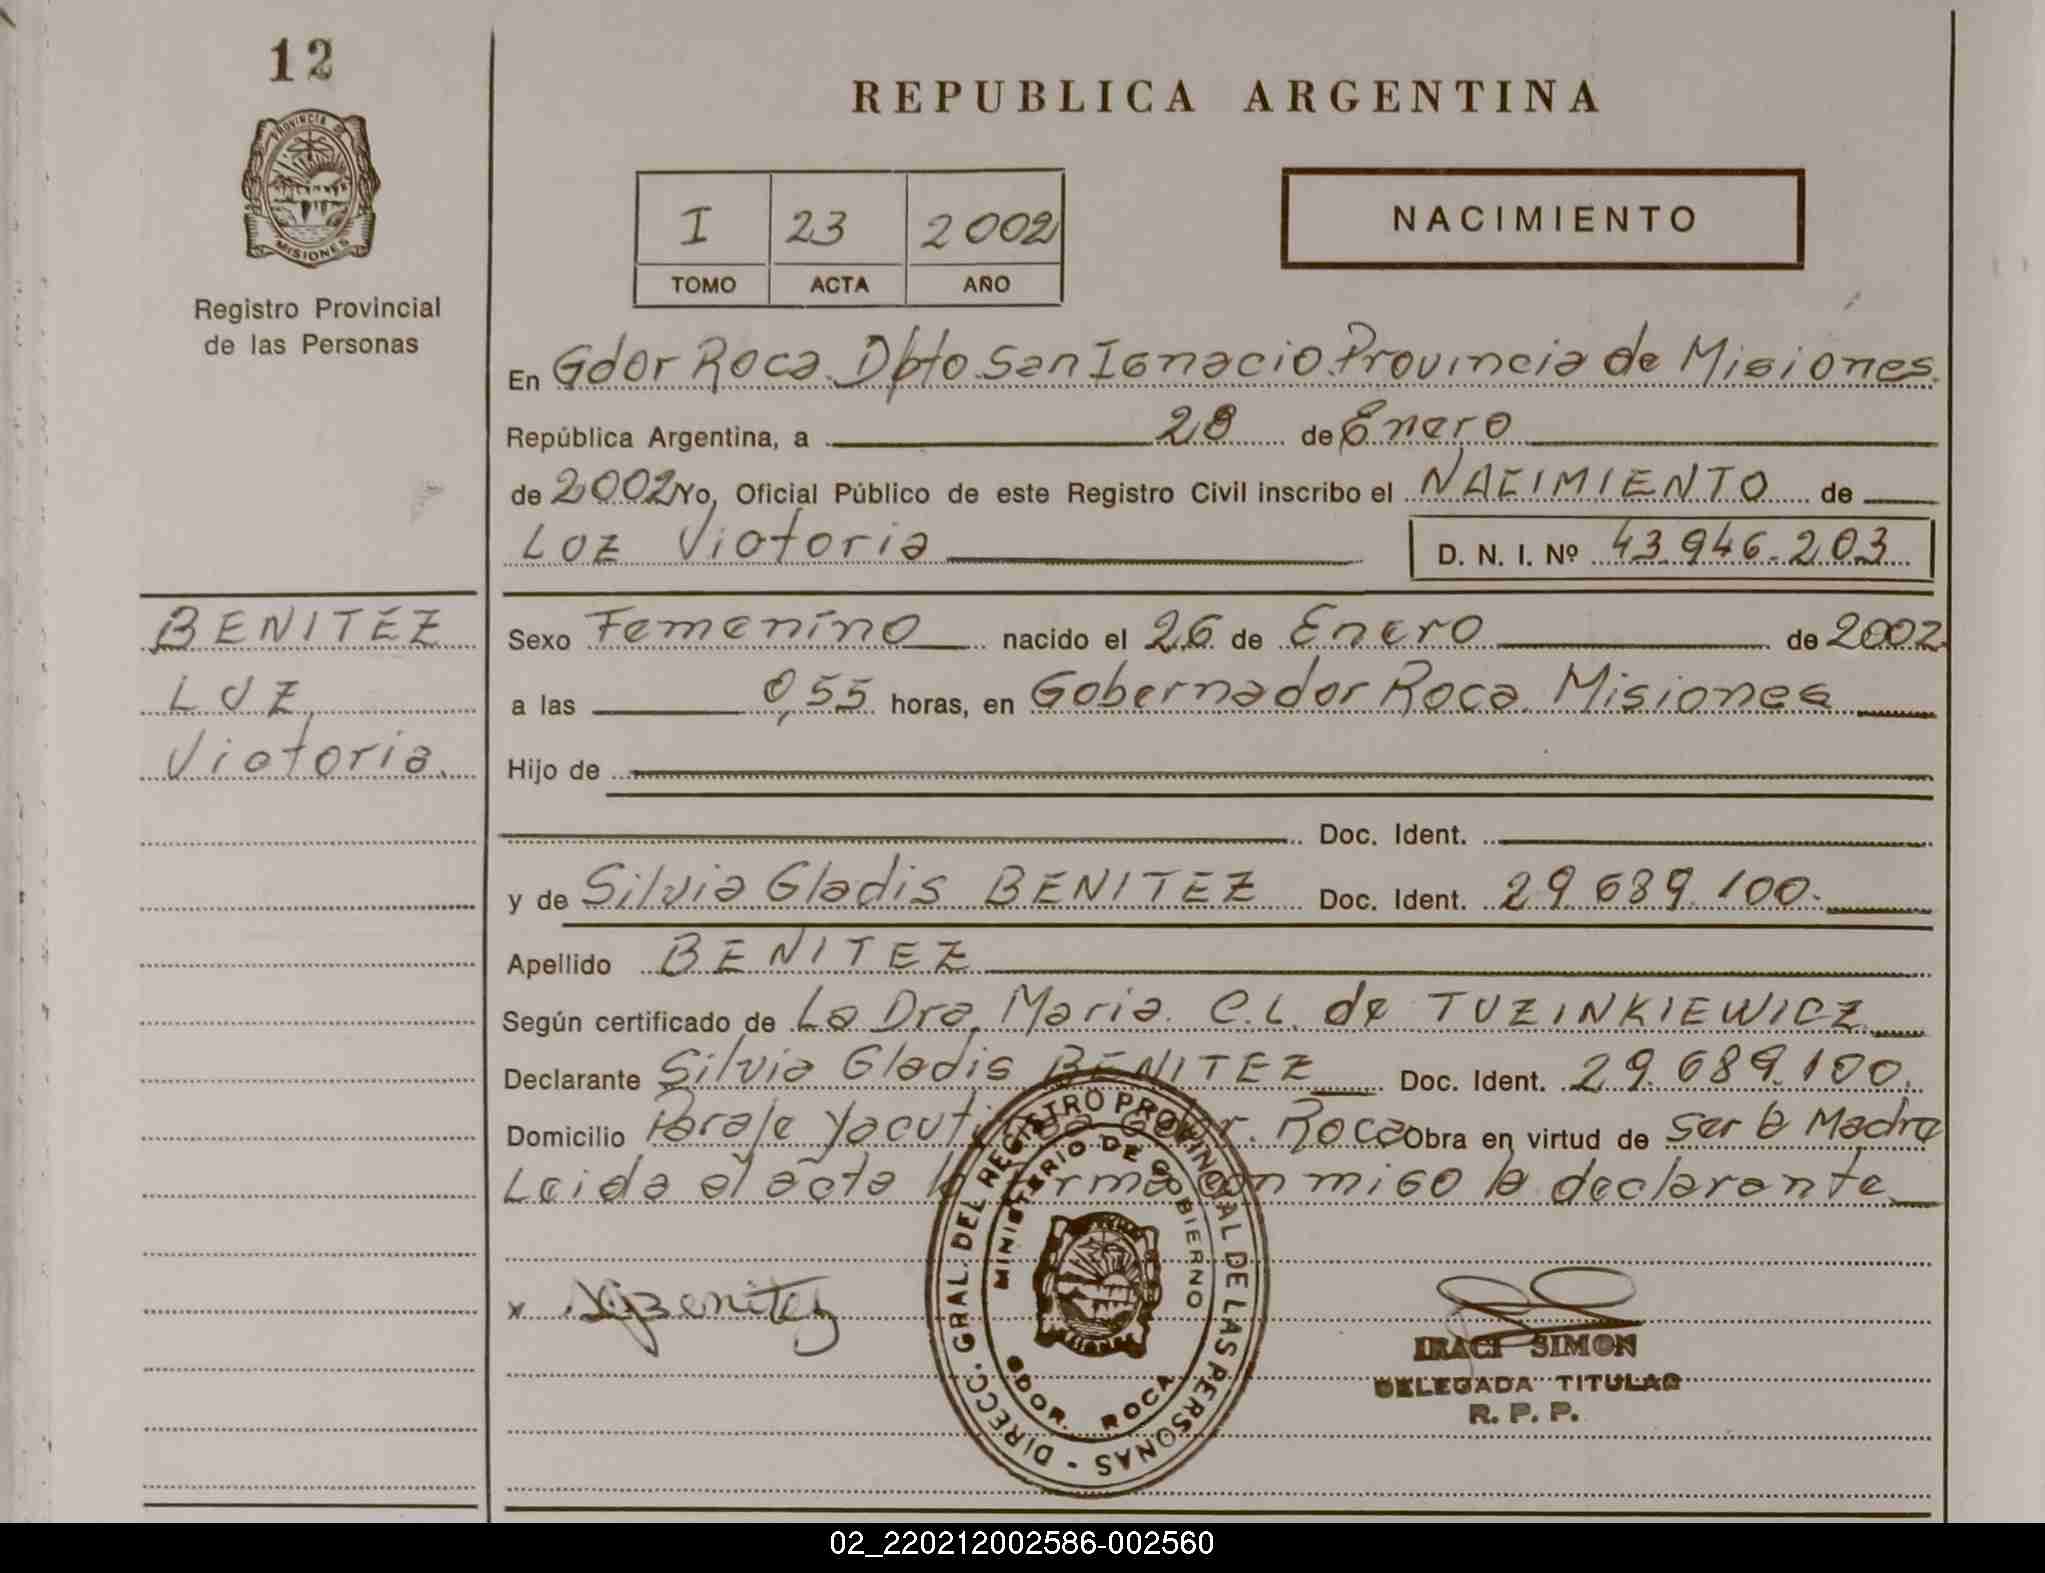 12
PROVINCIA DE
MISIONES
Registro Provincial
de las Personas
BENITEZ
LUZ
Victoria.
REPUBLICA ARGENTINA
I 23 2002
TOMO ACTA AÑO
NACIMIENTO
En Gdor Roca. Dpto San Ignacio Provincia de Misiones.
República Argentina, a 28 de Enero
de 2002 Yo, Oficial Público de este Registro Civil inscribo el NACIMIENTO de
Luz Victoria D. N. I. Nº 43.946.203
Sexo Femenino nacido el 26 de Enero de 2002
a las 0,55 horas, en Gobernador Roca. Misiones
Hijo de
Doc. Ident.
y de Silvia Gladis BENITEZ Doc. Ident. 29.689.100.
Apellido BENITEZ
Según certificado de La Dra. Maria C.L. de TUZINKIEWICZ
Declarante Silvia Gladis BENITEZ Doc. Ident. 29.689.100.
Domicilio Paraje Yacutinga Gdor. Roca Obra en virtud de ser la Madre
Leida el acta la firma conmigo la declarante
x Benitez
DIRECC. GRAL. DEL REGISTRO PROVINCIAL DE LAS PERSONAS -
MINISTERIO DE GOBIERNO
GDOR. ROCA
IRACI SIMON
DELEGADA TITULAR
R. P. P.
02_220212002586-002560